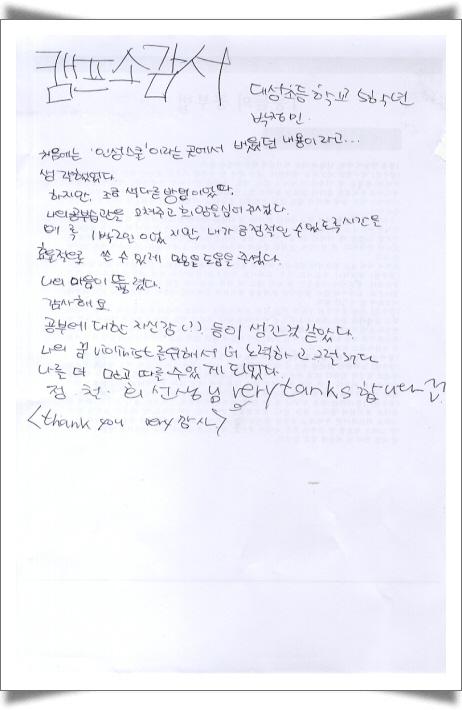 캠프소감서
대성초등학교 5학년
박정민.
처음에는 '인성스쿨'이라는 곳에서 배웠던 내용이라고...
생각했었다.
하지만, 조금 색다른 방법이었다.
나의공부습관은 고쳐주고 희망을심어 주셨다.
비록 1박2일 이었지만, 내가 긍정적인 수있도록시간은
효율적으로 쓸 수 있게 많은도움을주셨다.
나의 마음이 뚫렸다.
감사해요
공부에 대한 자신감(?) 등이 생긴것 같았다.
나의 꿈 violinist를위해서 더 노력하고 그럴거다
나를 더 믿고 따를수있게 되었다.
정.철.희 선생님 very tanks합니다 끝.
<thank you very 감사>